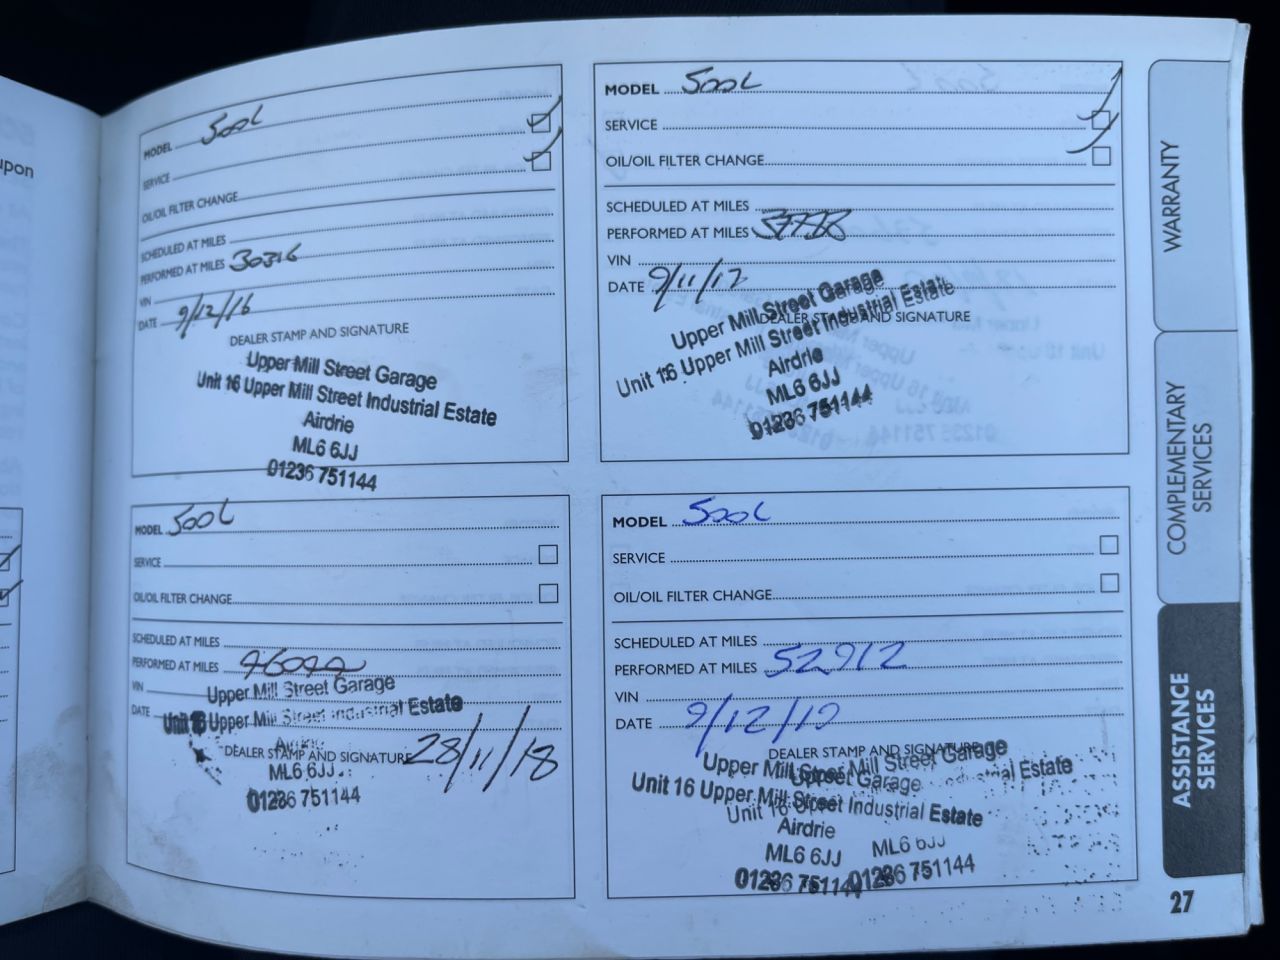 upon
MODEL 500L
SERVICE
OIL/OIL FILTER CHANGE
SCHEDULED AT MILES
PERFORMED AT MILES 30316
VIN
DATE 9/12/16
DEALER STAMP AND SIGNATURE
Upper Mill Street Garage
Unit 16 Upper Mill Street Industrial Estate
Airdrie
ML6 6JJ
01236 751144
MODEL 500L
SERVICE
OIL/OIL FILTER CHANGE
SCHEDULED AT MILES
PERFORMED AT MILES
VIN
DATE 9/11/17
DEALER STAMP AND SIGNATURE
Upper Mill Street Garage
Unit 16 Upper Mill Street Industrial Estate
Airdrie
ML6 6JJ
01236 751144
MODEL 500L
SERVICE
OIL/OIL FILTER CHANGE
SCHEDULED AT MILES
PERFORMED AT MILES
VIN
DATE
Upper Mill Street Garage
Unit 16 Upper Mill Street Industrial Estate
Airdrie
DEALER STAMP AND SIGNATURE 28/11/18
ML6 6JJ
01236 751144
MODEL 500L
SERVICE
OIL/OIL FILTER CHANGE
SCHEDULED AT MILES
PERFORMED AT MILES 52912
VIN
DATE 9/12/19
DEALER STAMP AND SIGNATURE
Upper Mill Street Garage
Unit 16 Upper Mill Street Industrial Estate
Airdrie
ML6 6JJ
01236 751144
WARRANTY
COMPLEMENTARY
SERVICES
ASSISTANCE
SERVICES
27